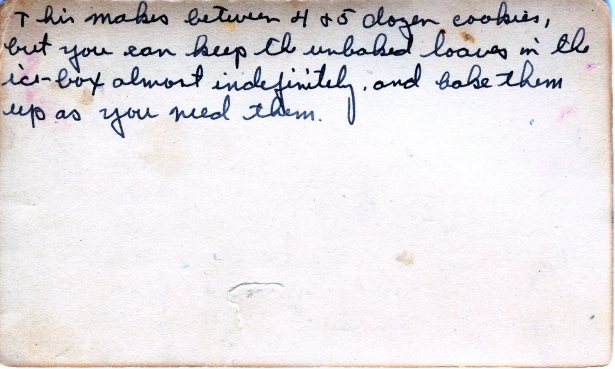 This makes between 4 & 5 dozen cookies,
but you can keep the unbaked loaves in the
ice-box almost indefinitely, and bake them
up as you need them.